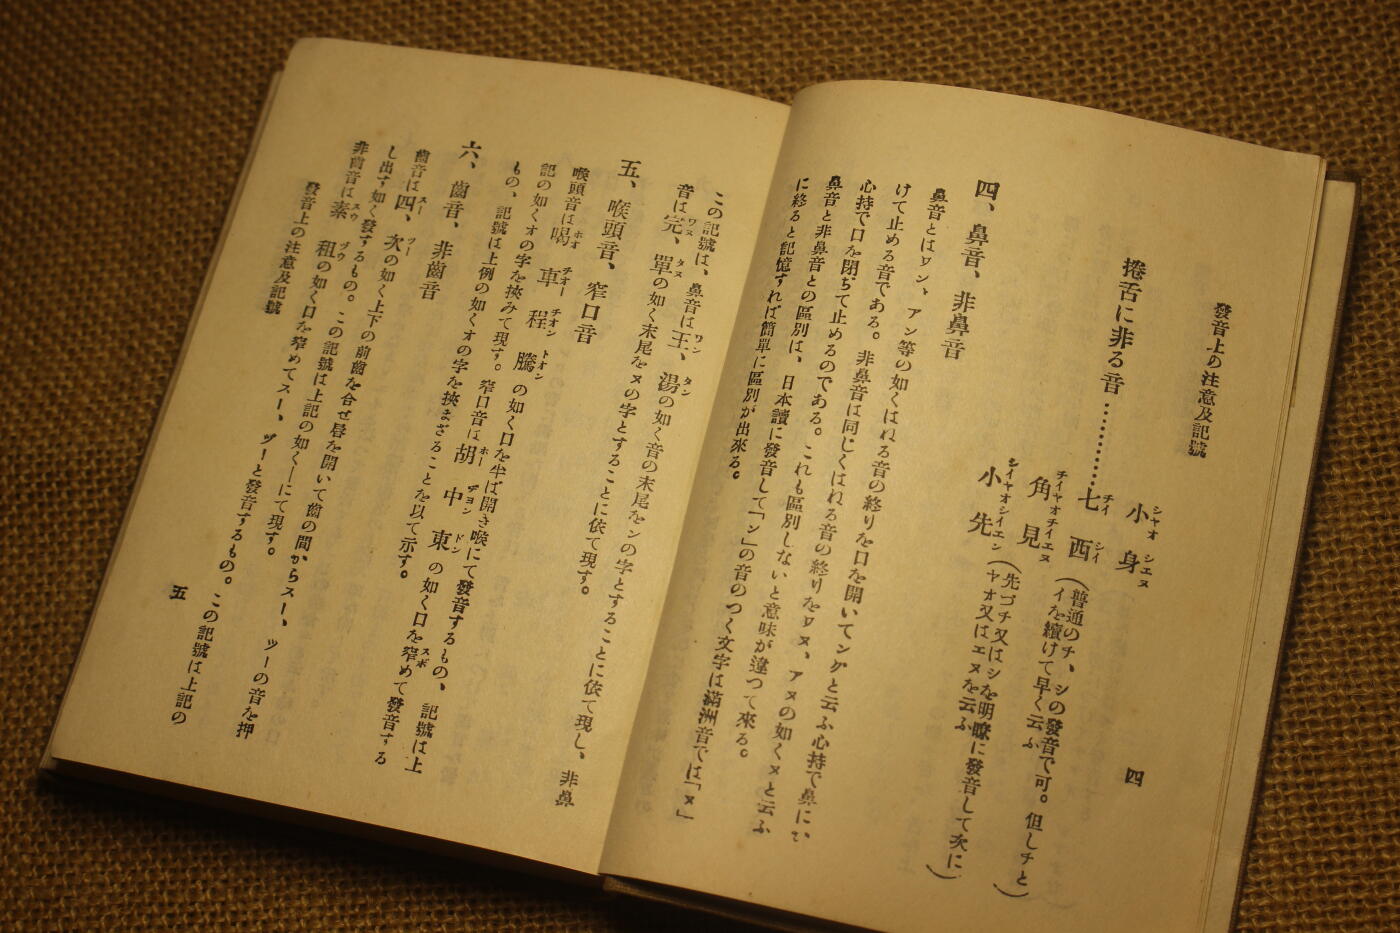 發音上の注意及記號
四
捲舌に非る音…………七チイ 西シイ 小シヤオ 身シエヌ
角チイヤオ 見チイエヌ
小シイヤオ 先シイエン
(普通のチ、シの發音で可。但しチと
イを續けて早く云ふ)
(先づチ又はシを明瞭に發音して次に
ヤオ又はエヌを云ふ)
四、鼻音、非鼻音
鼻音とはワン、アン等の如くはねる音の終りを口を開いてングと云ふ心持で鼻にか
けて止める音である。非鼻音は同じくはねる音の終りをワヌ、アヌの如くヌと云ふ
心持で口を閉ぢて止めるのである。これも區別しないと意味が違つて來る。
鼻音と非鼻音との區別は、日本讀に發音して「ン」の音のつく文字は滿洲音では「ヌ」
に終ると記憶すれば簡單に區別が出來る。
この記號は、鼻音は王ワン、湯タンの如く音の末尾をンの字とすることに依て現し、非鼻
音は完ワヌ、單タヌの如く末尾をヌの字とすることに依て現す。
五、喉頭音、窄口音
喉頭音は喝ホオ 車チオー 程チオン 騰トオン の如く口を半ば開き喉にて發音するもの、記號は上
記の如くオの字を挾みて現す。窄口音は胡ホー 中ヂヨン 東ドン の如く口を窄スボめて發音する
もの、記號は上例の如くオの字を挾まざることを以て示す。
六、齒音、非齒音
齒音は四スー、次ツーの如く上下の前齒を合せ唇を開いて齒の間からスー、ツーの音を押
し出す如く發するもの。この記號は上記の如く—にて現す。
非齒音は素スウ 租ヅウの如く口を窄めてスー、ヅーと發音するもの。この記號は上記の
發音上の注意及記號
五